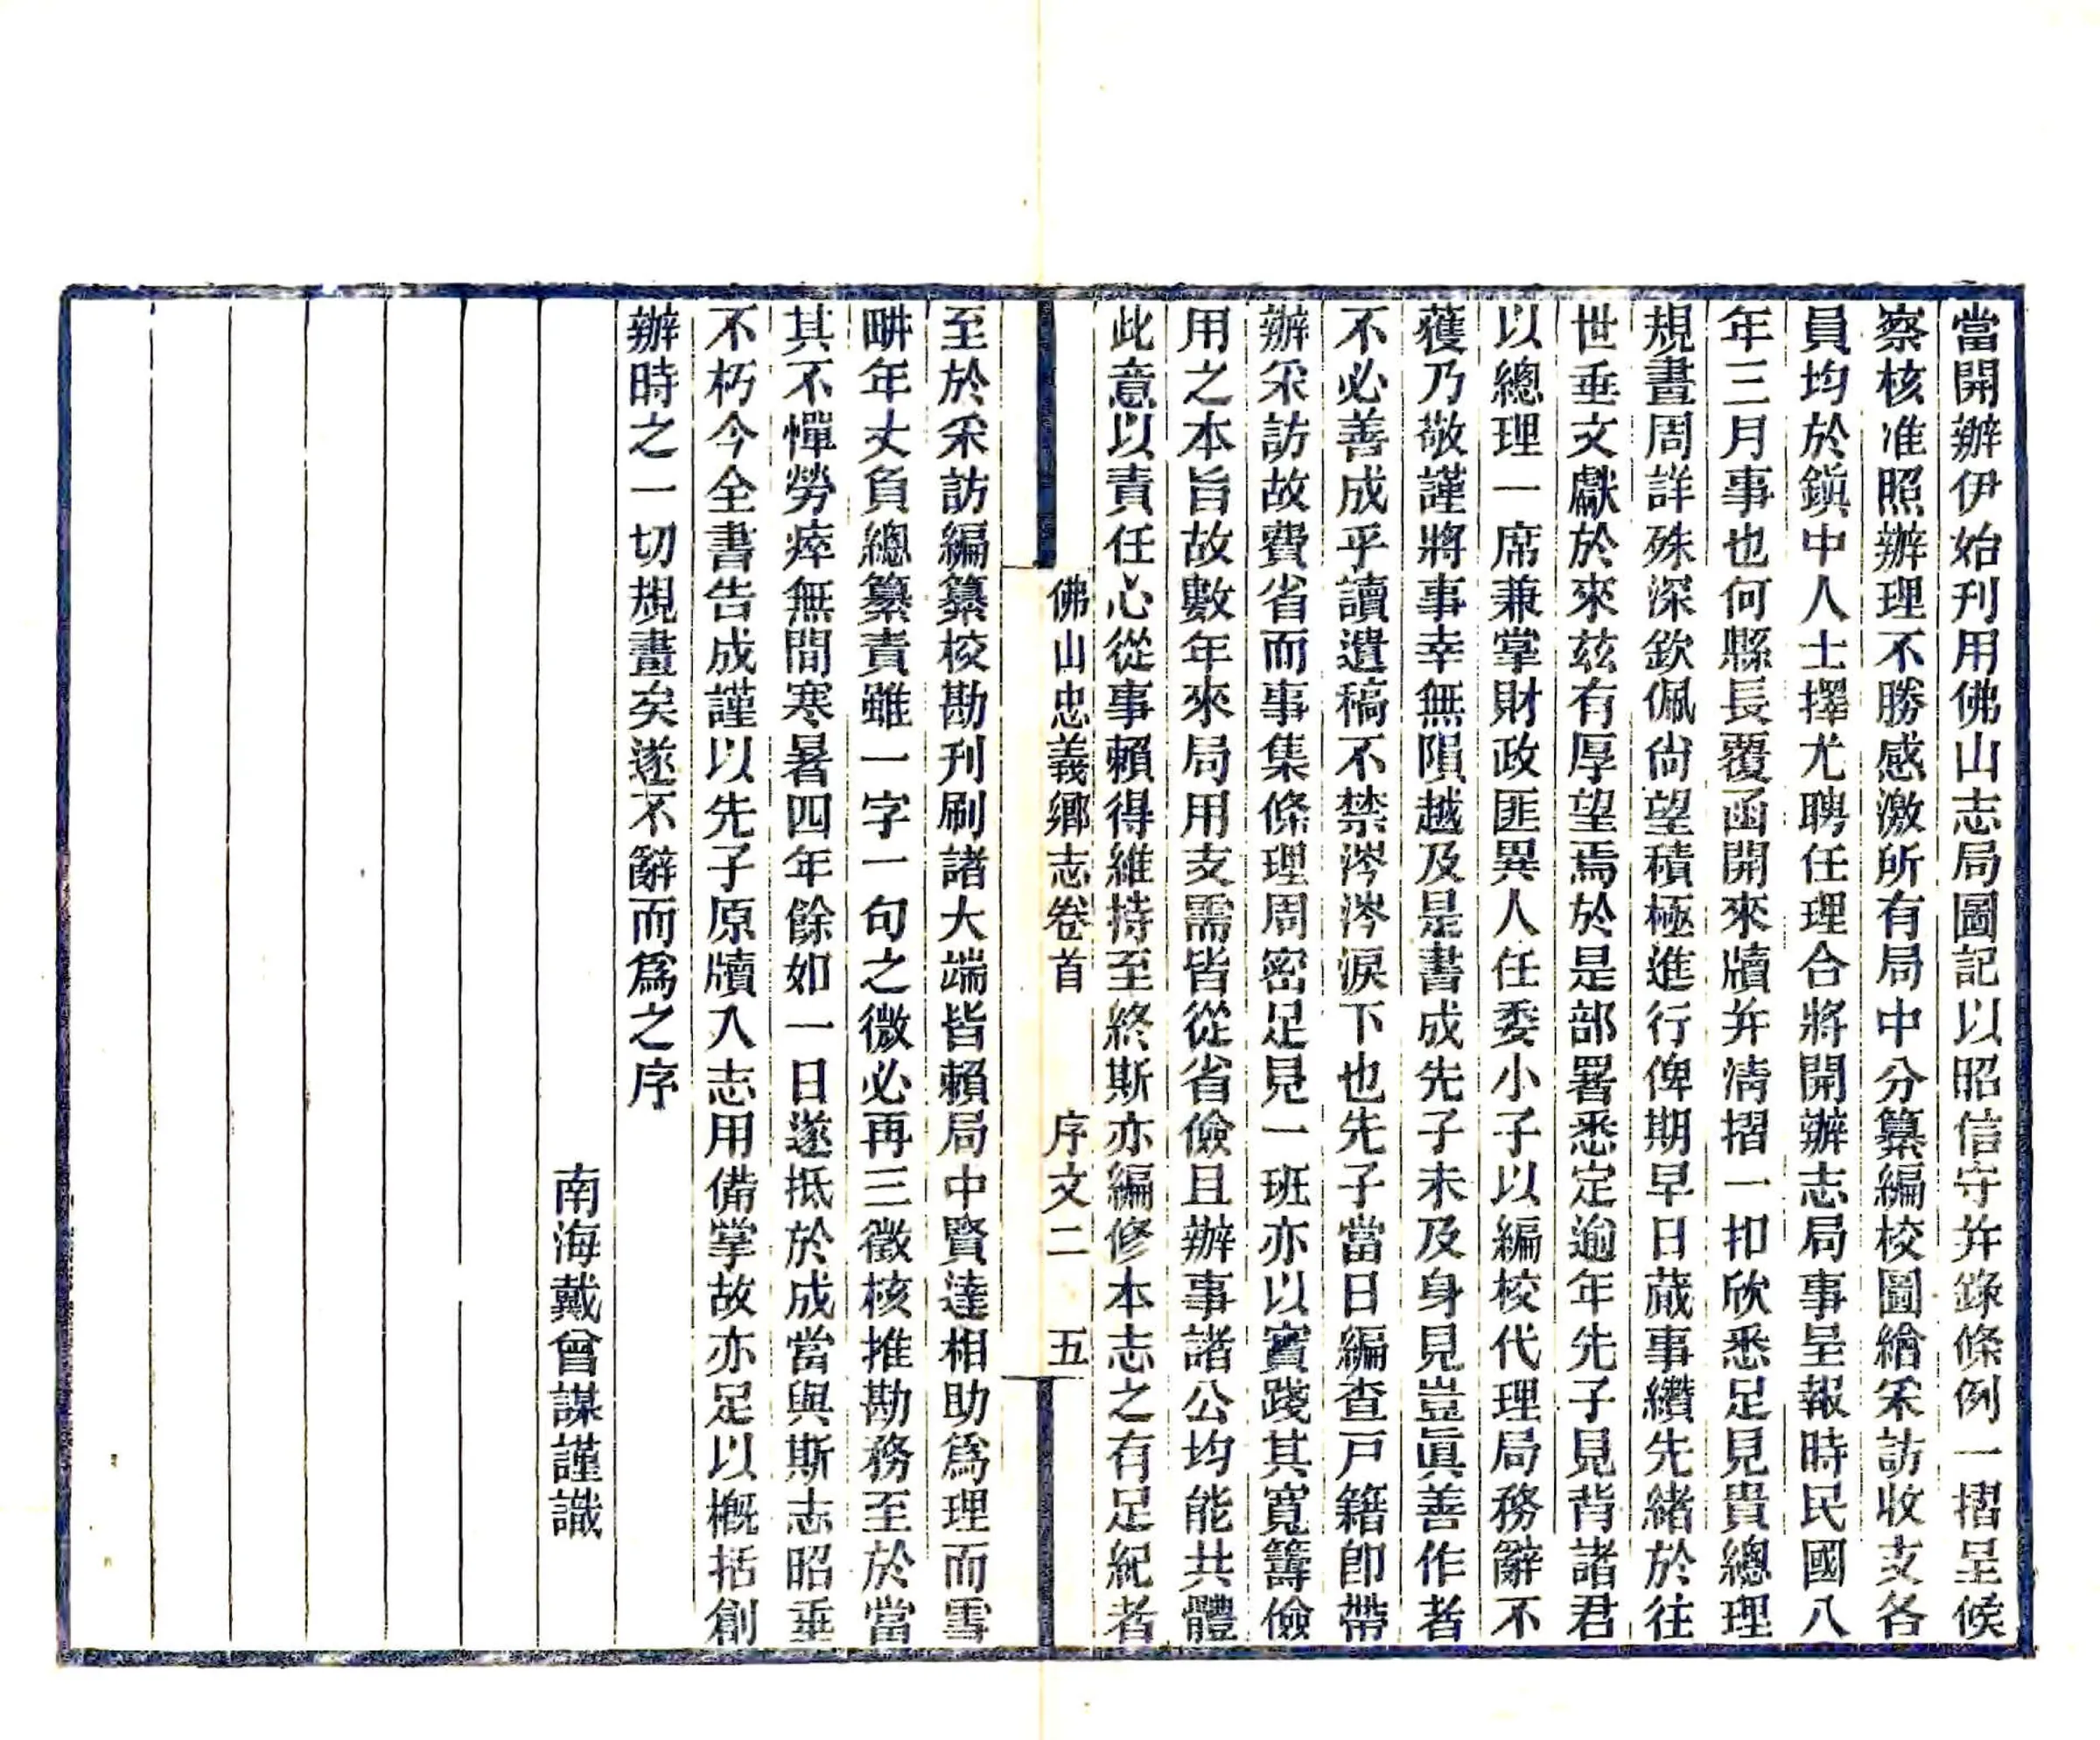 當開辦伊始刋用佛山志局圖記以昭信守幷錄條例一摺呈候
察核准照辦理不勝感激所有局中分纂編校圖繪采訪收支各
員均於鎭中人士擇尤聘任理合將開辦志局事呈報時民國八
年三月事也何縣長覆函開來牘幷淸摺一扣欣悉足見貴總理
規畫周詳殊深欽佩尙望積極進行俾期早日蕆事纘先緒於往
世垂文獻於來玆有厚望焉於是部署悉定逾年先子見背諸君
以總理一席兼掌財政匪異人任委小子以編校代理局務辭不
獲乃敬謹將事幸無隕越及是書成先子未及身見豈眞善作者
不必善成乎讀遺稿不禁涔涔淚下也先子當日編查戸籍卽帶
辦采訪故費省而事集條理周密足見一班亦以實踐其寬籌儉
用之本旨故數年來局用支需皆從省儉且辦事諸公均能共體
此意以責任心從事賴得維持至終斯亦編修本志之有足紀者
佛山忠義鄕志卷首　序文二　五
至於采訪編纂校勘刋刷諸大端皆賴局中賢達相助爲理而雪
畊年丈負總纂責雖一字一句之微必再三徵核推勘務至於當
其不憚勞瘁無間寒暑四年餘如一日遂抵於成當與斯志昭垂
不朽今全書告成謹以先子原牘入志用備掌故亦足以槪括創
辦時之一切規畫矣遂不辭而爲之序
南海戴曾謀謹識